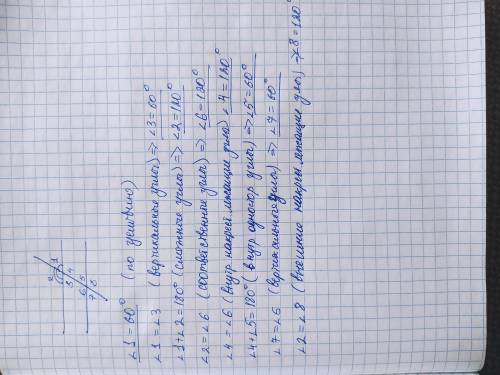 2 1
3 4
6 5
7 8
∠1 = 60° (по условию)
∠1 = ∠3 (вертикальные углы) => ∠3 = 60°
∠1 + ∠2 = 180° (смежные углы) => ∠2 = 120°
∠2 = ∠6 (соответственные углы) => ∠6 = 120°
∠4 = ∠6 (внутр накрест лежащие углы) ∠4 = 120°
∠4 + ∠5 = 180° (внутр однастор углы) => ∠5 = 60°
∠7 = ∠5 (вертикальные углы) => ∠7 = 60°
∠2 = ∠8 (внешние накрест лежащие углы) => ∠8 = 120°